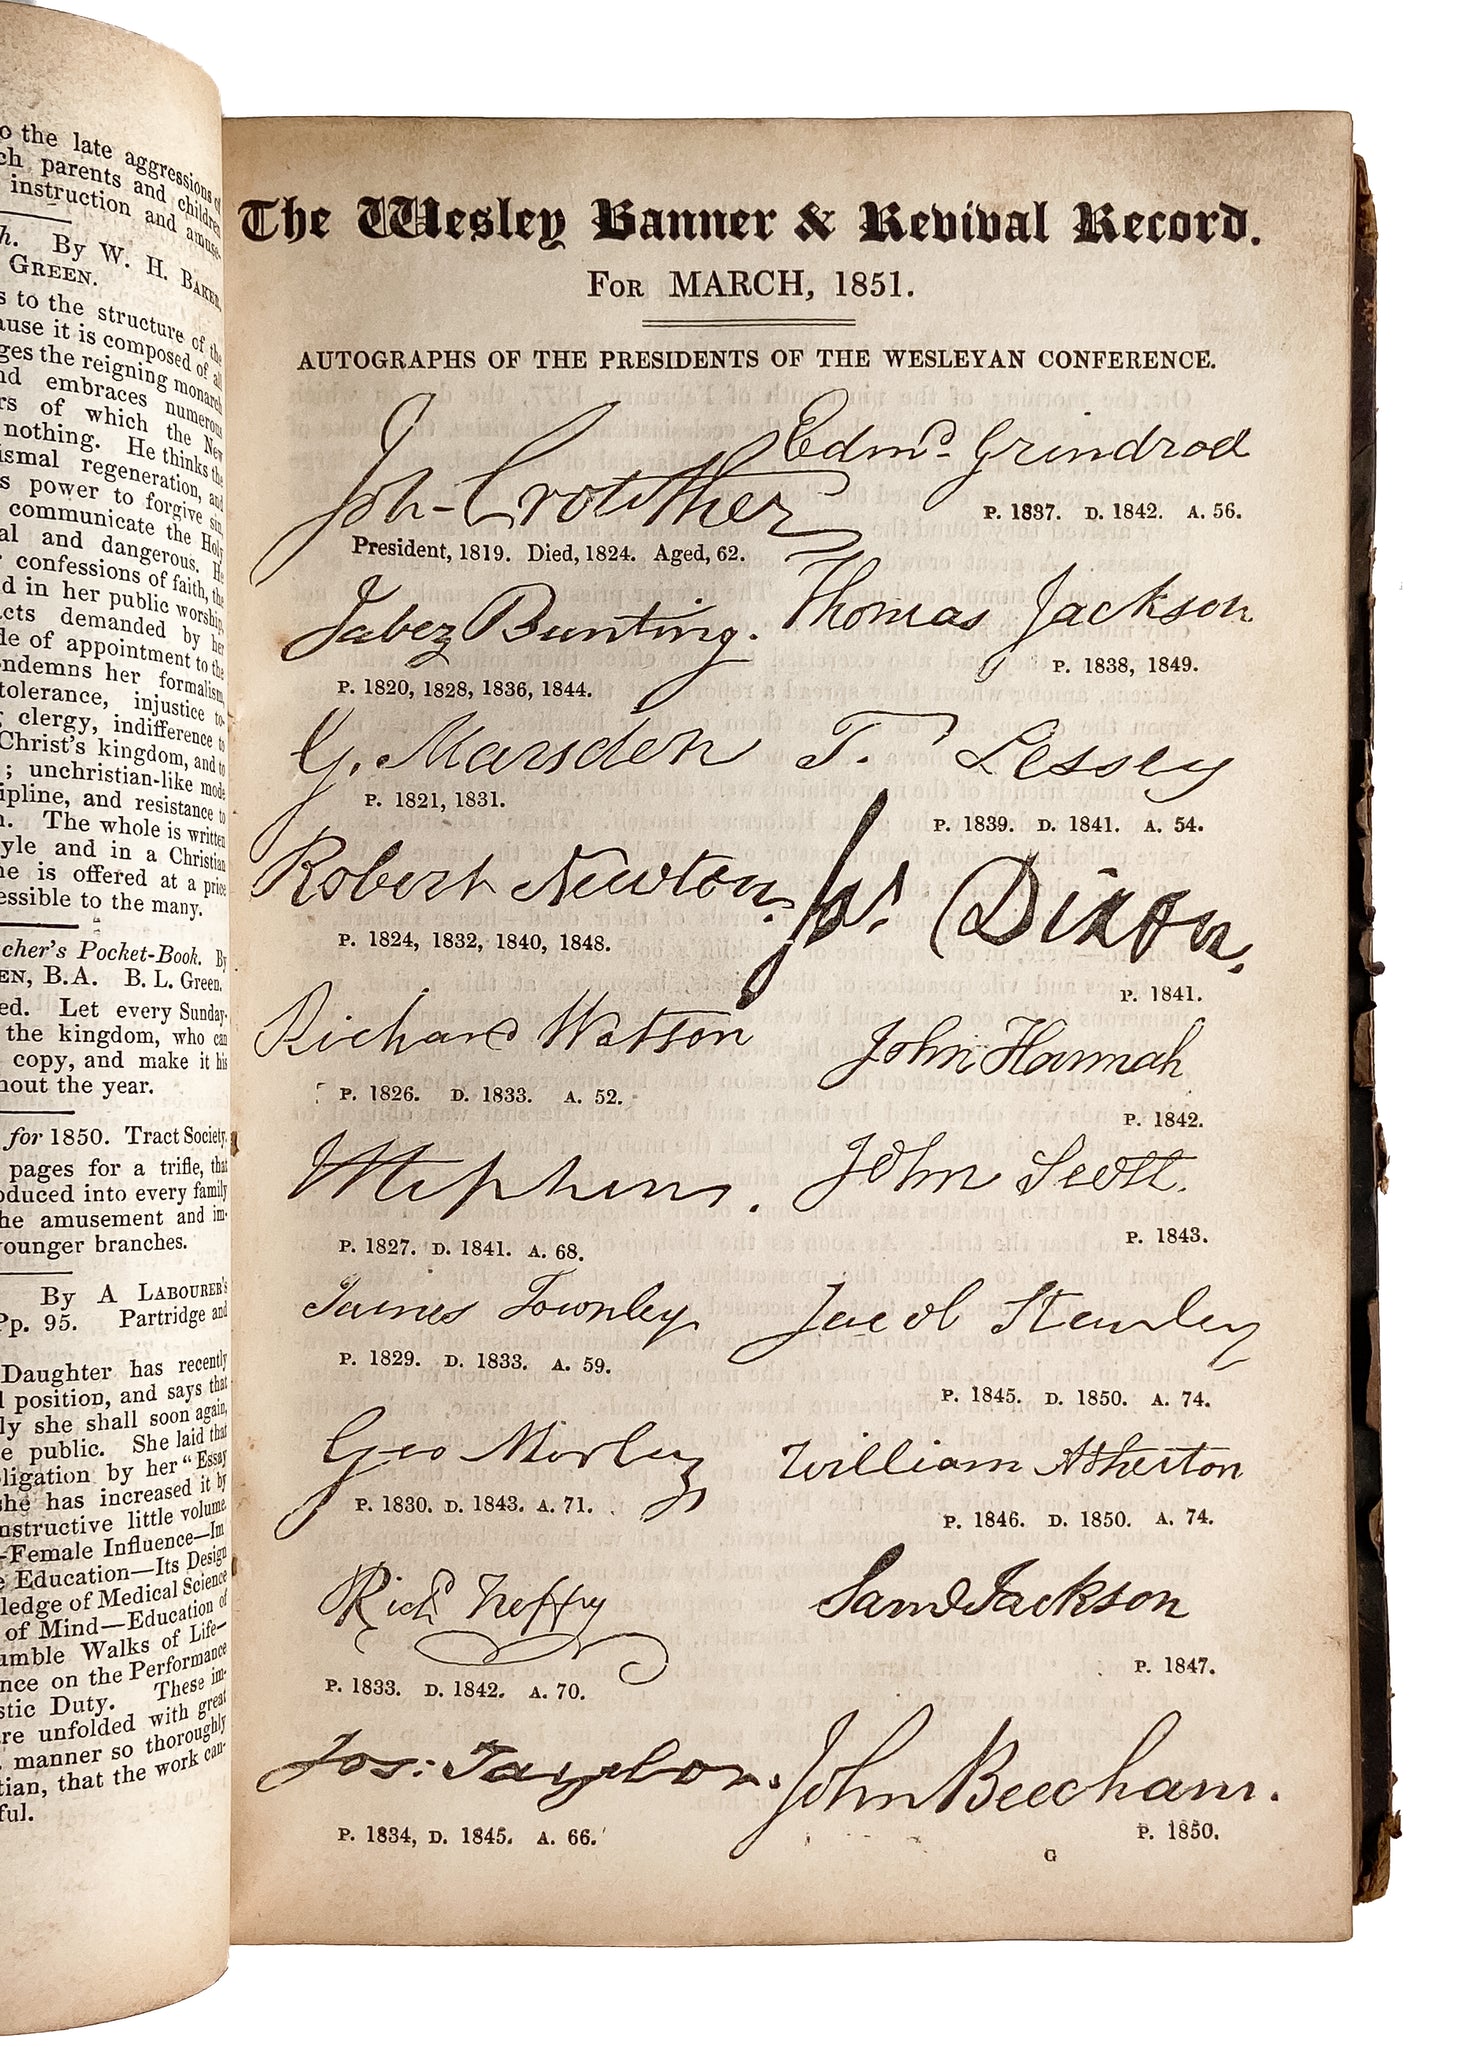 o the late aggressions of
ch parents and children
instruction and amuse-
h. By W. H. BAKER,
GREEN.
s to the structure of the
ause it is composed of all
ges the reigning monarch
nd embraces numerous
rs of which the New
nothing. He thinks the
ismal regeneration, and
s power to forgive sin
communicate the Holy
al and dangerous. He
r confessions of faith, the
d in her public worship,
cts demanded by her
de of appointment to the
ondemns her formalism,
tolerance, injustice to-
clergy, indifference to
Christ's kingdom, and to
; unchristian-like mode
cipline, and resistance to
n. The whole is written
yle and in a Christian
me is offered at a price
essible to the many.
cher's Pocket-Book. By
EN, B.A. B. L. Green.
ed. Let every Sunday-
the kingdom, who can
copy, and make it his
hout the year.
for 1850. Tract Society.
pages for a trifle, that
oduced into every family
he amusement and im-
younger branches.
By A LABOURER'S
Pp. 95. Partridge and
Daughter has recently
l position, and says that
ly she shall soon again,
e public. She laid that
bligation by her "Essay
she has increased it by
nstructive little volume
-Female Influence—Im
e Education—Its Design
ledge of Medical Science
of Mind—Education of
umble Walks of Life—
nce on the Performance
stic Duty. These im-
re unfolded with great
manner so thoroughly
tian, that the work can-
ful.
The Wesley Banner & Revival Record.
FOR MARCH, 1851.
AUTOGRAPHS OF THE PRESIDENTS OF THE WESLEYAN CONFERENCE.
Joh- Crowther
President, 1819. Died, 1824. Aged, 62.
Jabez Bunting.
P. 1820, 1828, 1836, 1844.
G. Marsden
P. 1821, 1831.
Robert Newton.
P. 1824, 1832, 1840, 1848.
Richard Watson
P. 1826. D. 1833. A. 52.
P. 1827. D. 1841. A. 68.
James Townley
P. 1829. D. 1833. A. 59.
Geo Morley
P. 1830. D. 1843. A. 71.
Richd Treffry
P. 1833. D. 1842. A. 70.
Jos: Taylor.
P. 1834, D. 1845. A. 66.
Edmd. Grindrod
P. 1837. D. 1842. A. 56.
Thomas Jackson
P. 1838, 1849.
T. Lessey
P. 1839. D. 1841. A. 54.
Jas Dixon.
P. 1841.
John Hannah
P. 1842.
John Scott.
P. 1843.
Jacob Stanley
P. 1845. D. 1850. A. 74.
William Atherton
P. 1846. D. 1850. A. 74.
Saml Jackson
P. 1847.
John Beecham.
P. 1850.
G